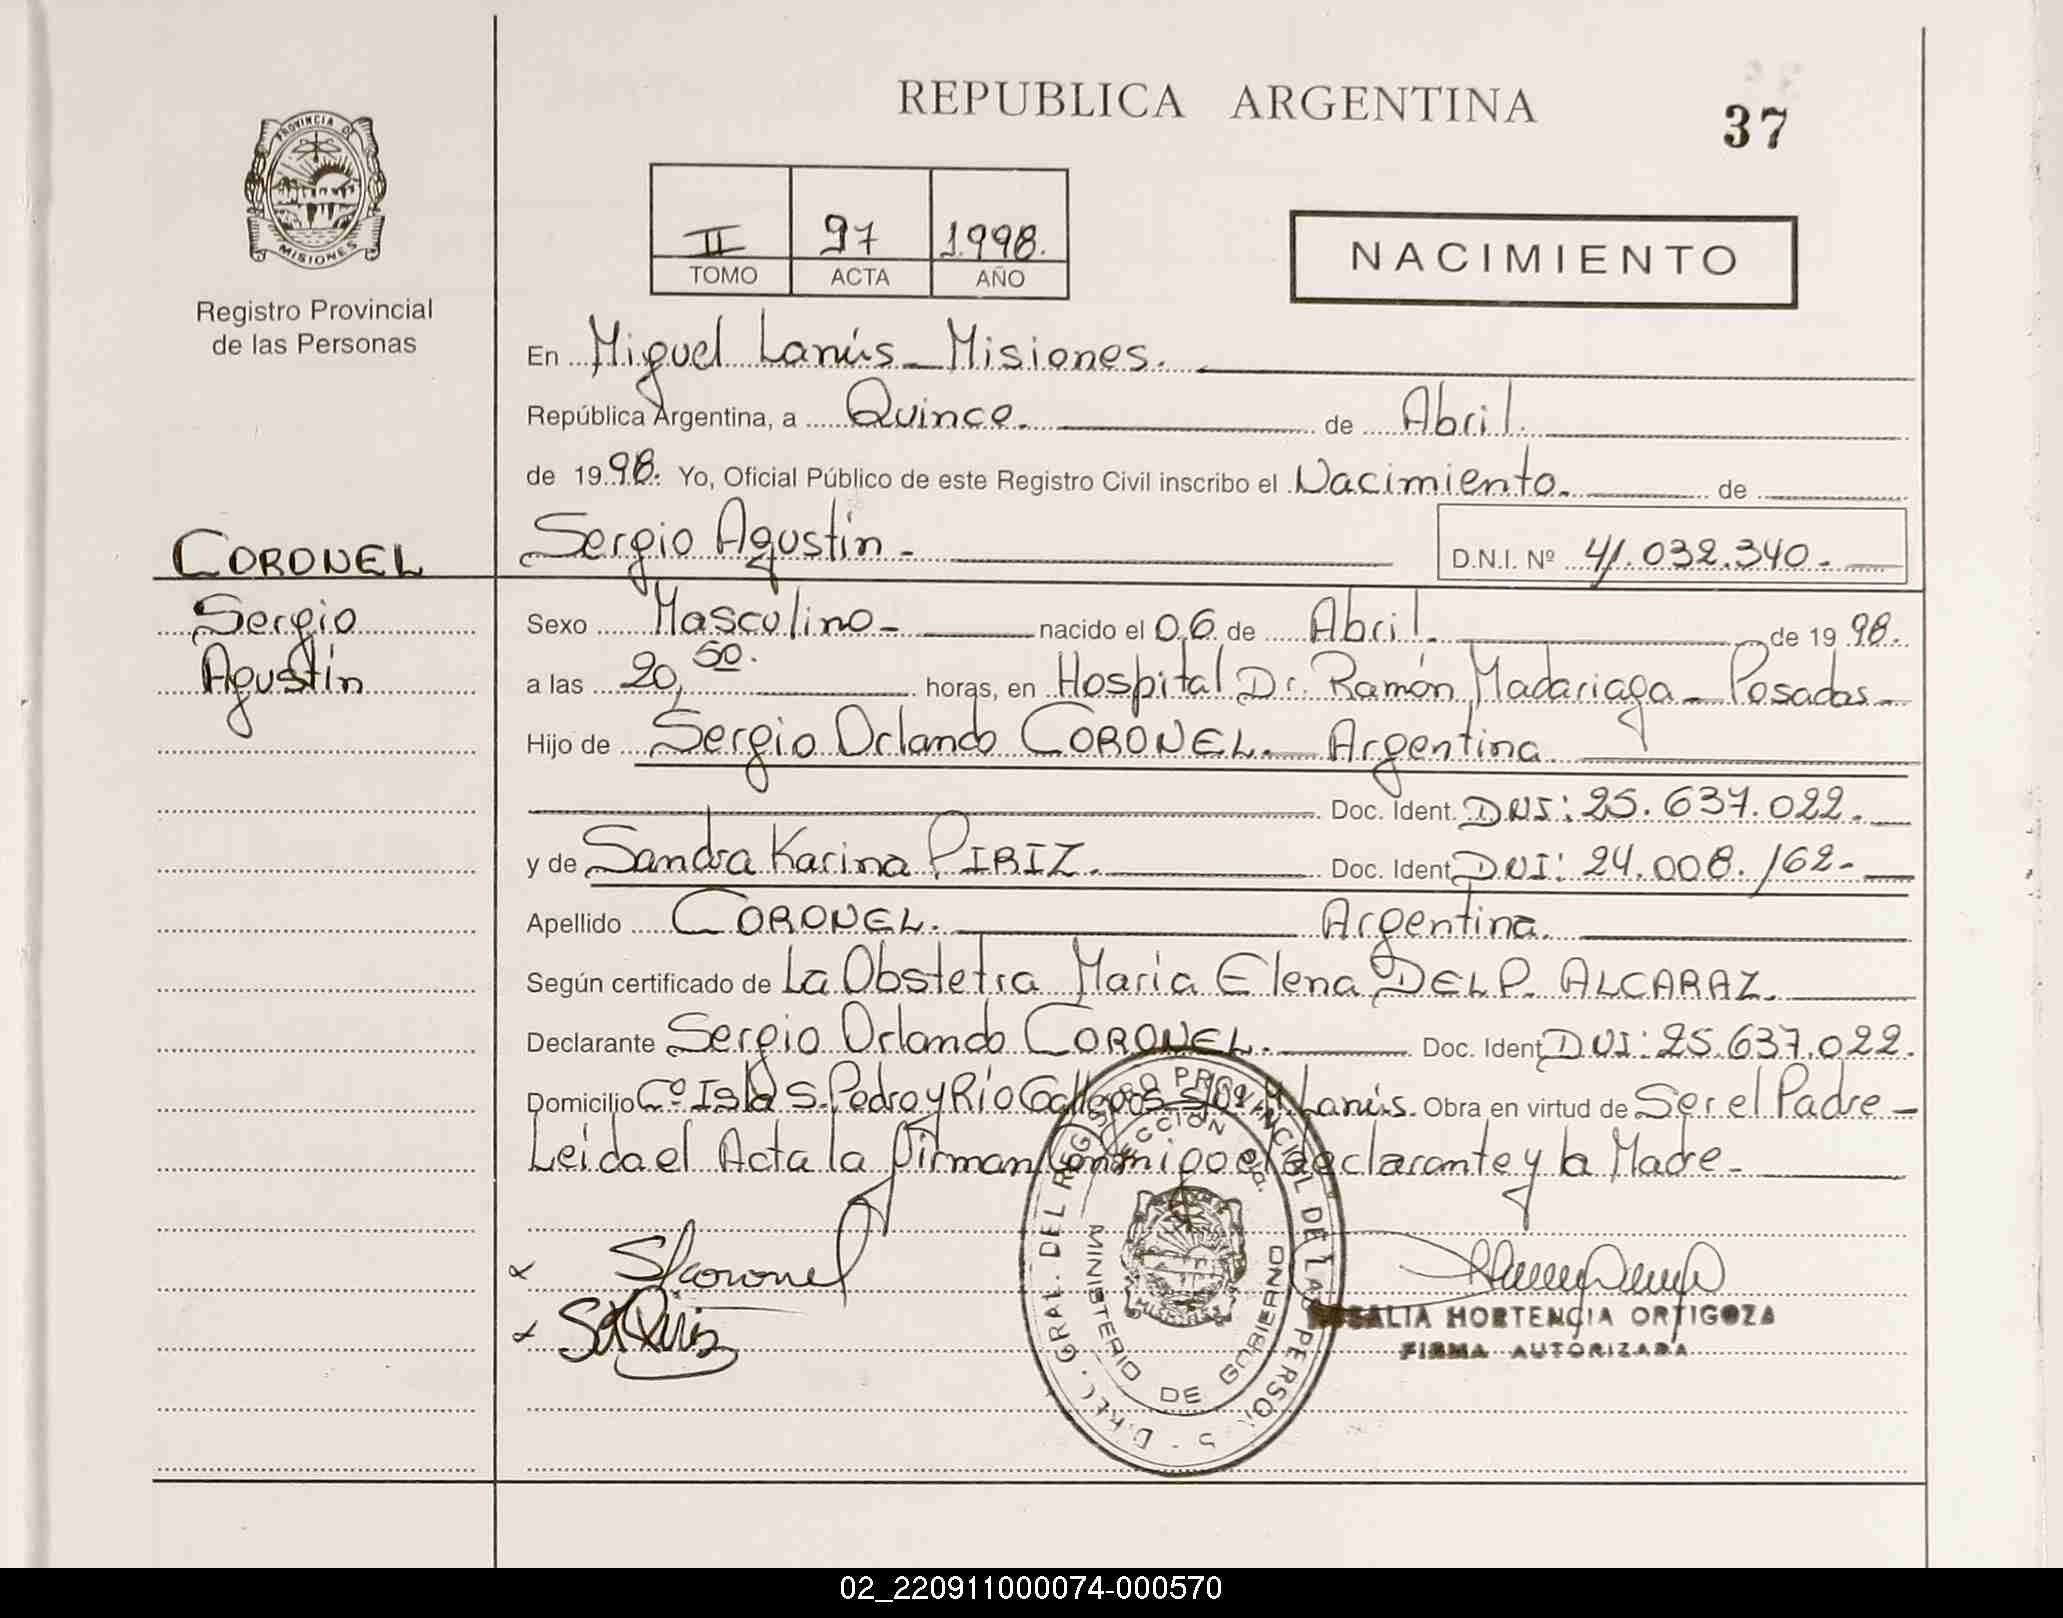 REPUBLICA ARGENTINA
37
PROVINCIA D
MISIONES
Registro Provincial
de las Personas
II 97 1.998.
TOMO ACTA AÑO
NACIMIENTO
En Miguel Lanús - Misiones.
República Argentina, a Quince. de Abril.
de 19 98. Yo, Oficial Público de este Registro Civil inscribo el Nacimiento. de
CORONEL
Sergio Agustín -
D.N.I. Nº 41.032.340.-
Sergio
Agustín
Sexo Masculino - nacido el 06. de Abril. de 19 98.
a las 20,50. horas, en Hospital Dr. Ramón Madariaga - Posadas -
Hijo de Sergio Orlando CORONEL. Argentina
Doc. Ident. DNI: 25.637.022.-
y de Sandra Karina PIRIZ. Doc. Ident DNI: 24.008.162-
Apellido CORONEL. Argentina.
Según certificado de La Obstetra Maria Elena DELP. ALCARAZ.
Declarante Sergio Orlando CORONEL. Doc. Ident DNI: 25.637.022.
Domicilio Cº Isla S. Pedro y Río Gallegos S/Nº M. Lanús. Obra en virtud de Ser el Padre -
Leida el Acta la firman conmigo el declarante y la Madre -
DIREC. GRAL. DEL REGISTRO PROVINCIAL DE LAS PERSONAS
MINISTERIO DE GOBIERNO
SCoronel
SKPiriz
ROSALIA HORTENCIA ORTIGOZA
FIRMA AUTORIZADA
02_220911000074-000570